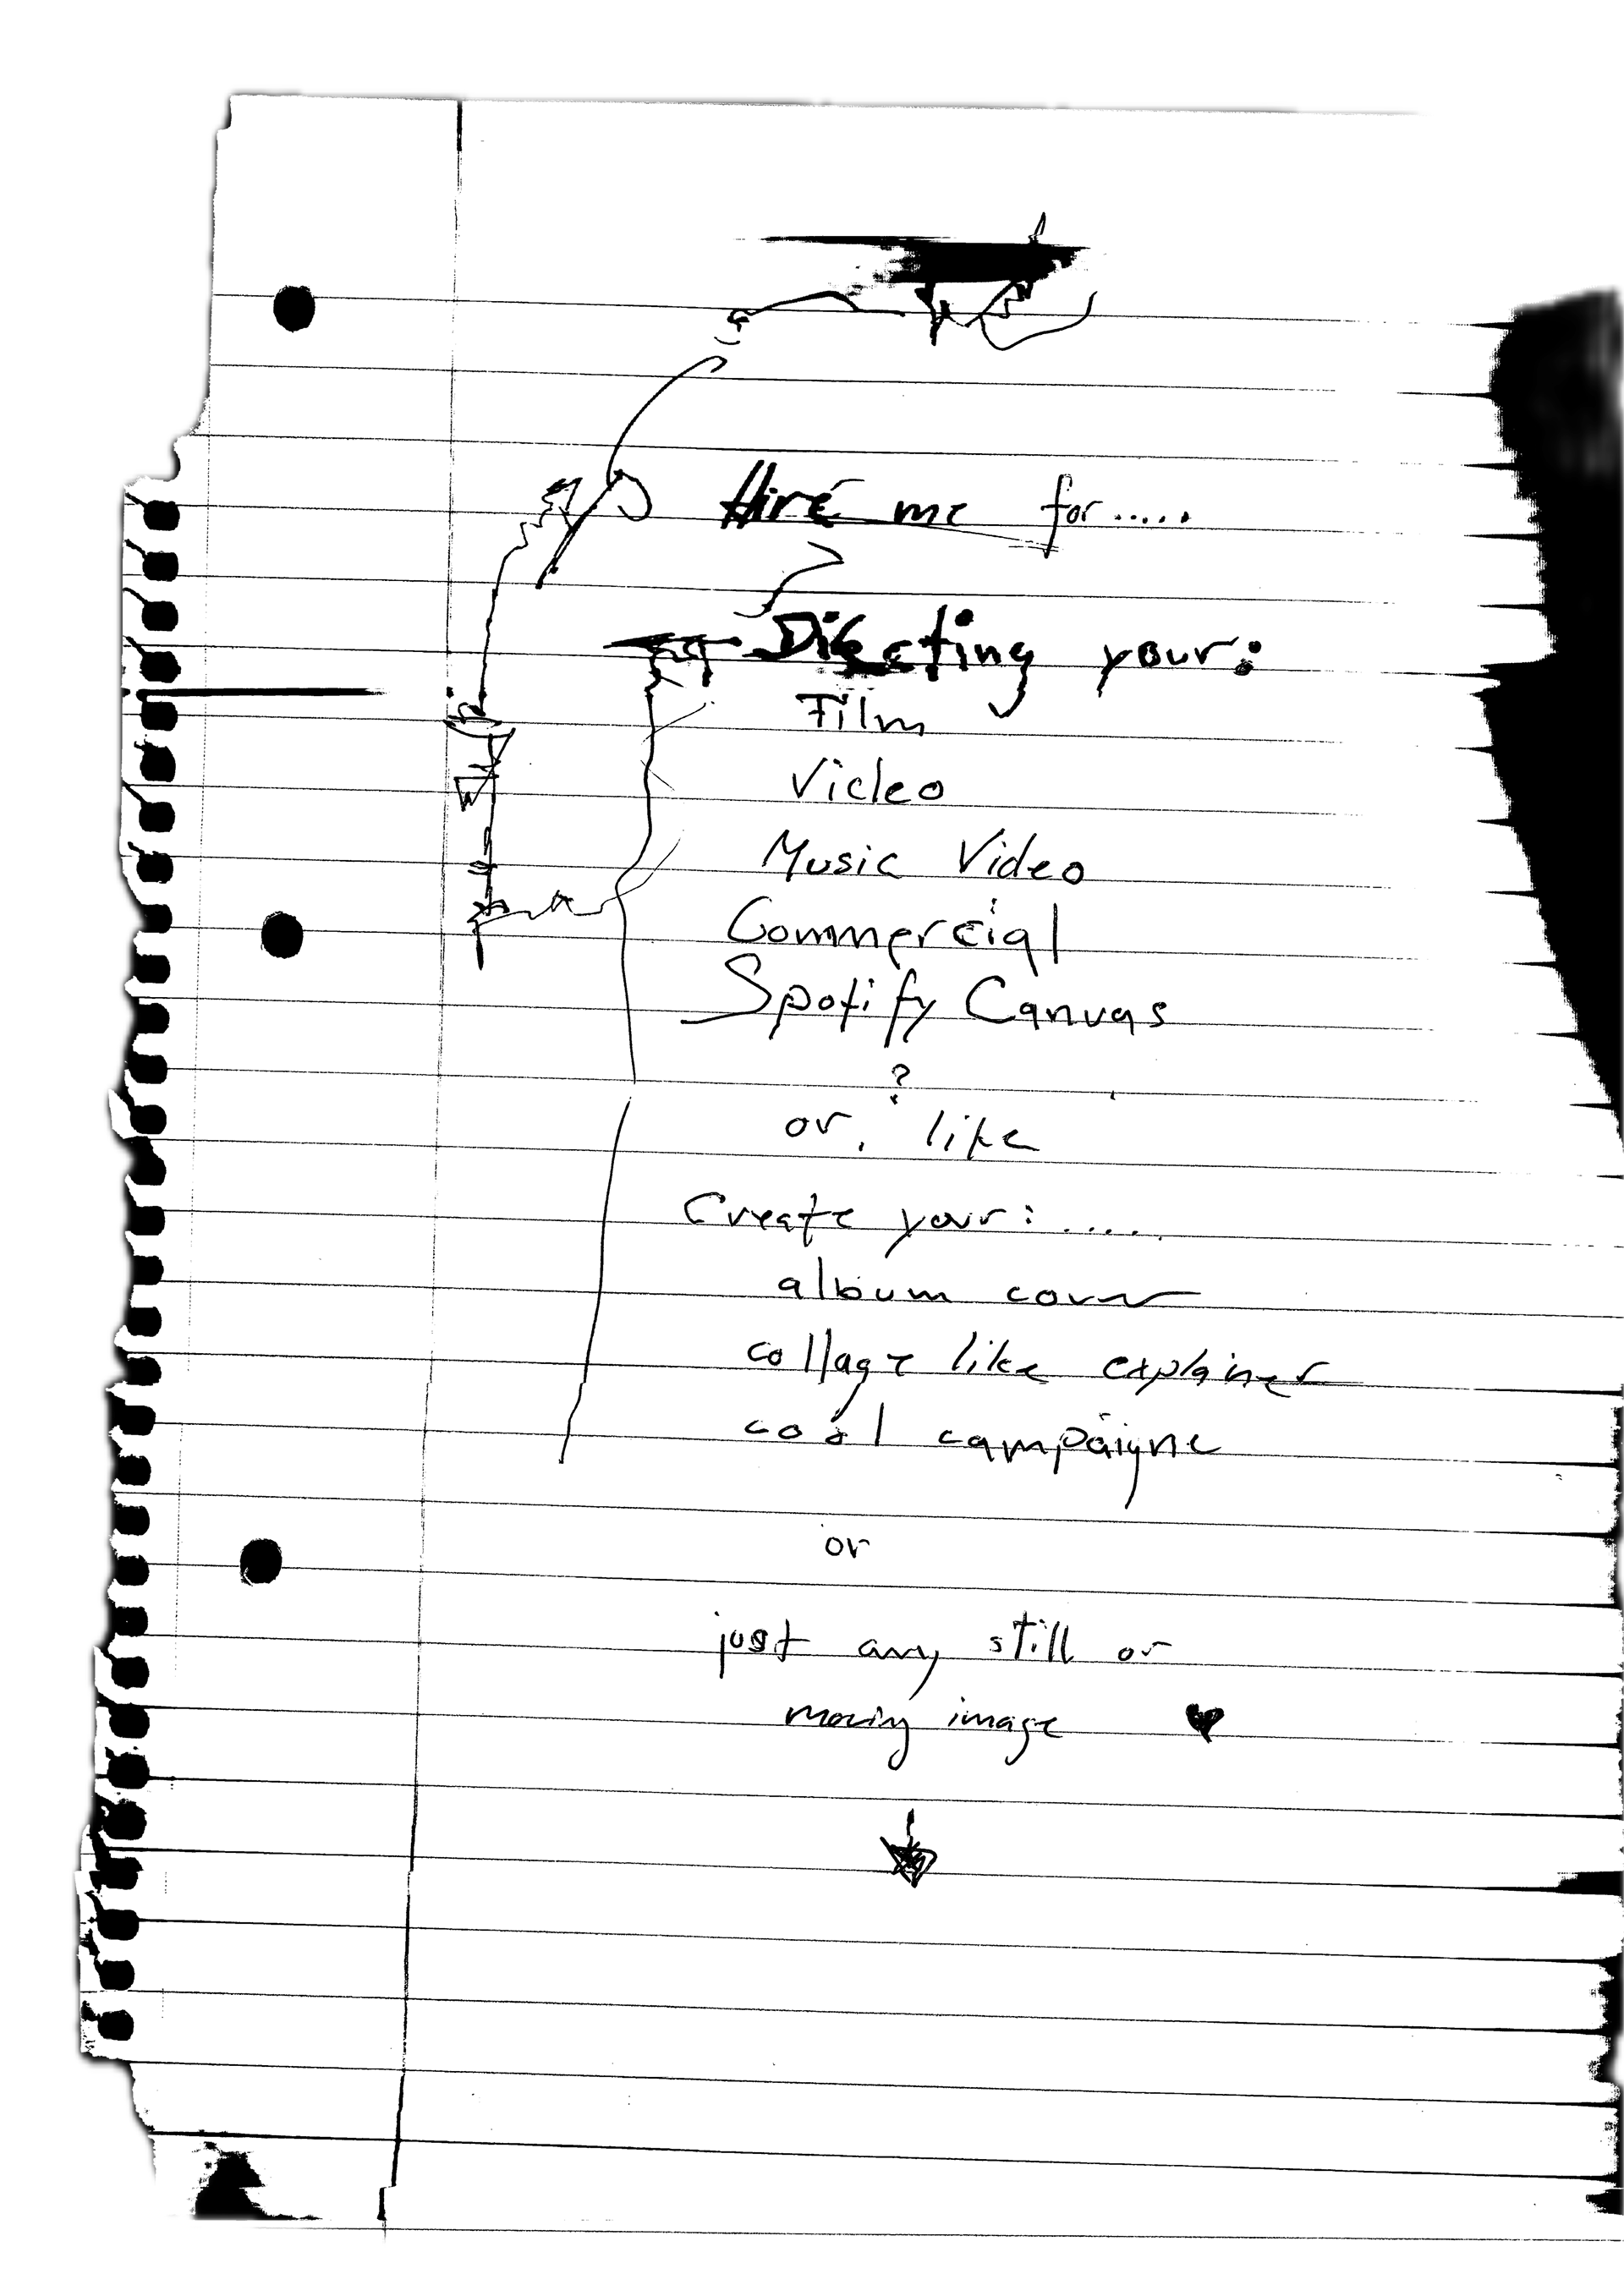 Hire me for.....
Directing your:
Film
Video
Music Video
Commercial
Spotify Canvas
?
or, like
Create your:.....
album cover
collage like explainer
cool campaigne
or
just any still or
moving image ♥